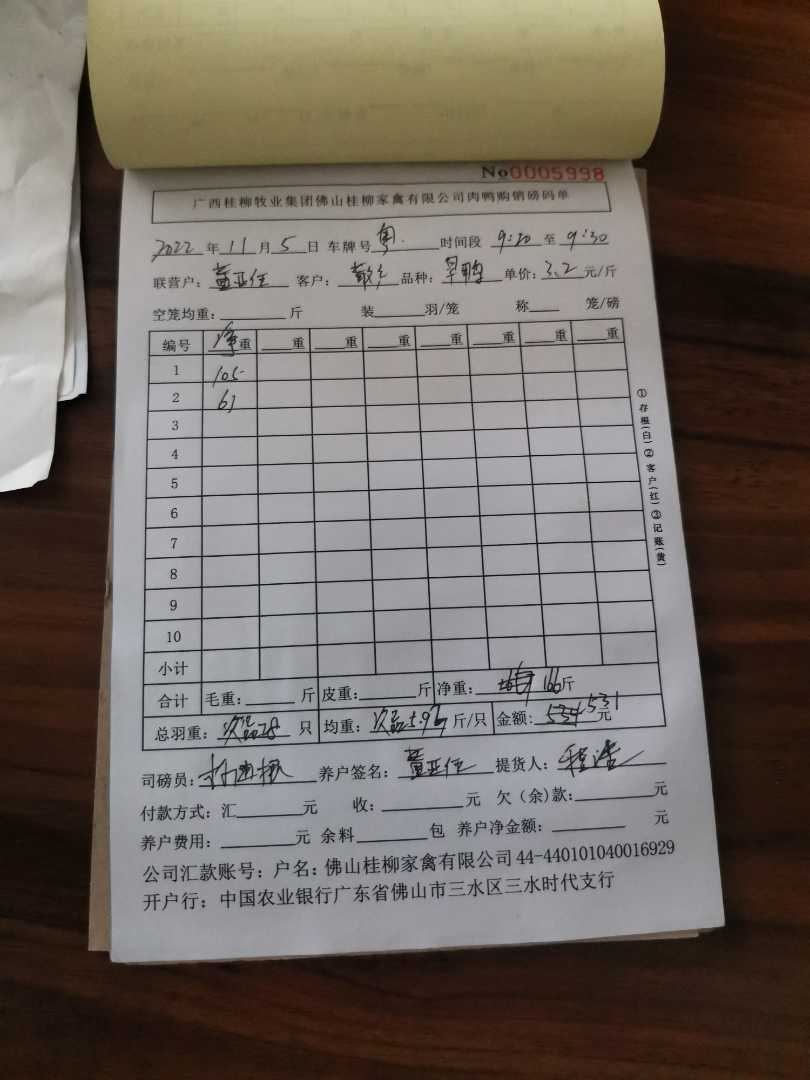 No0005998
广西桂柳牧业集团佛山桂柳家禽有限公司肉鸭购销磅码单
2022年11月5日 车牌号 粤. 时间段 9:20 至 9:30
联营户: 董亚任 客户: 品种: 旱鸭 单价: 3.2 元/斤
空笼均重: 斤 装 羽/笼 称 笼/磅
编号 净重 重 重 重 重 重 重 重
1 105
2 61
3
4
5
6
7
8
9
10
小计
合计 毛重: 斤 皮重: 斤 净重: 166斤
总羽重: 次品28 只 均重: 次品5.93 斤/只 金额: 534 531元
司磅员: 养户签名: 董亚任 提货人: 程浩
付款方式: 汇 元 收: 元 欠(余)款: 元
养户费用: 元 余料 包 养户净金额: 元
公司汇款账号: 户名: 佛山桂柳家禽有限公司 44-440101040016929
开户行: 中国农业银行广东省佛山市三水区三水时代支行
①存根(白)②客户(红)③记账(黄)